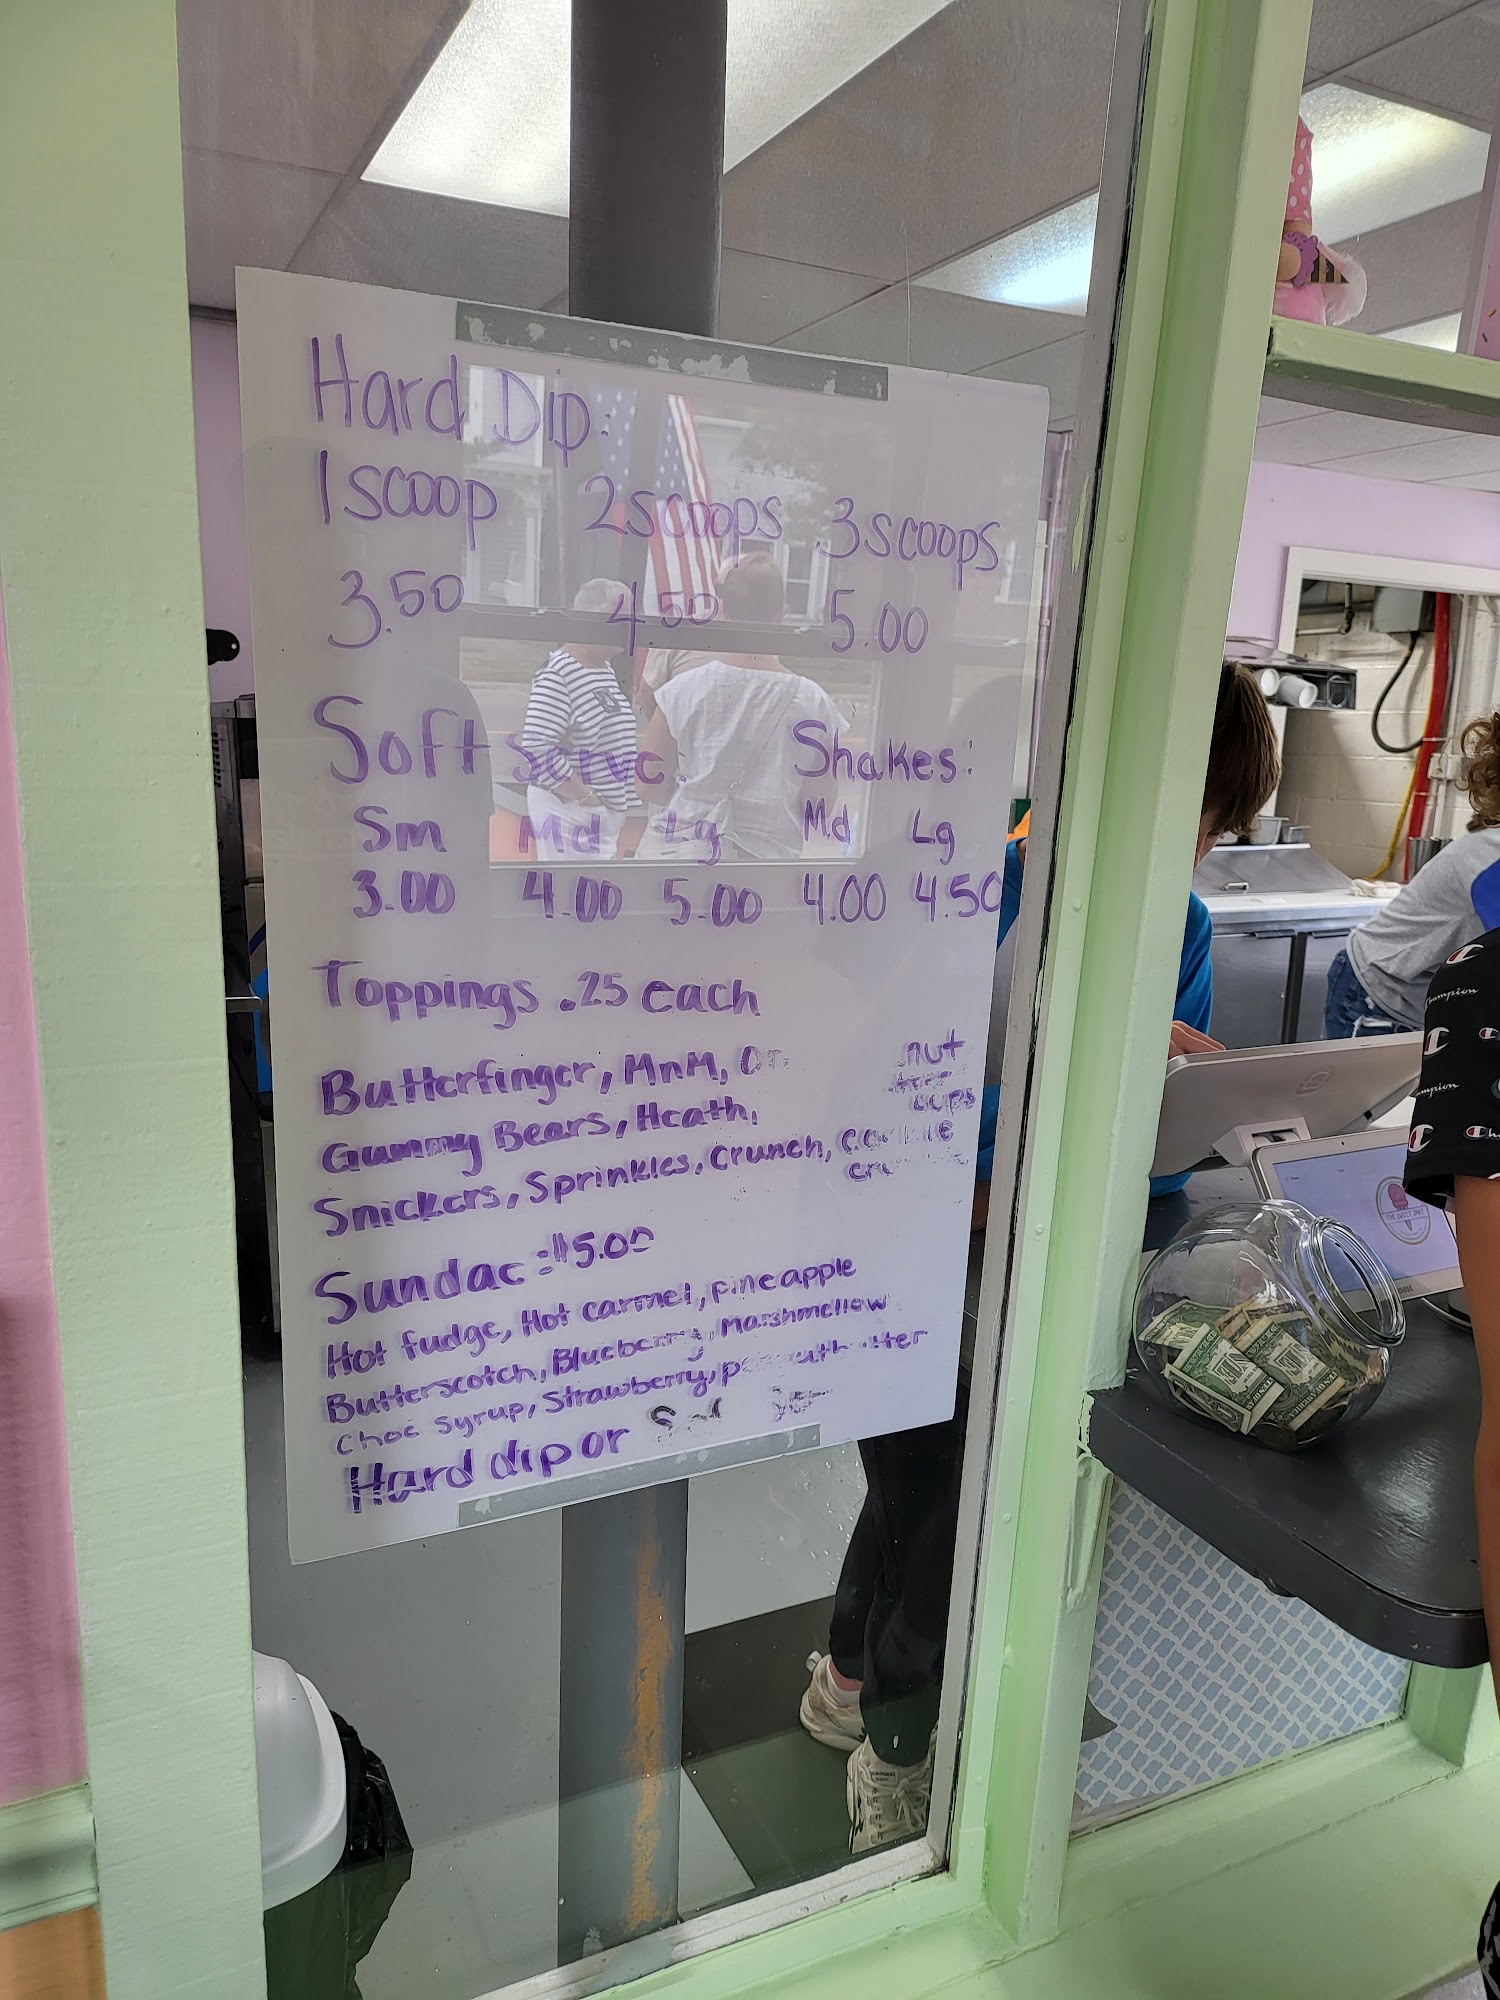 Hard Dip:
1 scoop 2 scoops 3 scoops
3.50 4.50 5.00
Soft Serve:
Sm Md Lg
3.00 4.00 5.00
Shakes:
Md Lg
4.00 4.50
Toppings .25 each
Butterfinger, MnM,
nut
cups
Gummy Bears, Heath,
Snickers, Sprinkles, Crunch, cookie
Sundae: $5.00
Hot fudge, Hot carmel, pineapple
Butterscotch, Blueberry, Marshmellow
Choc syrup, Strawberry,
Hard dip or
Champion
THE SWEET SPOT